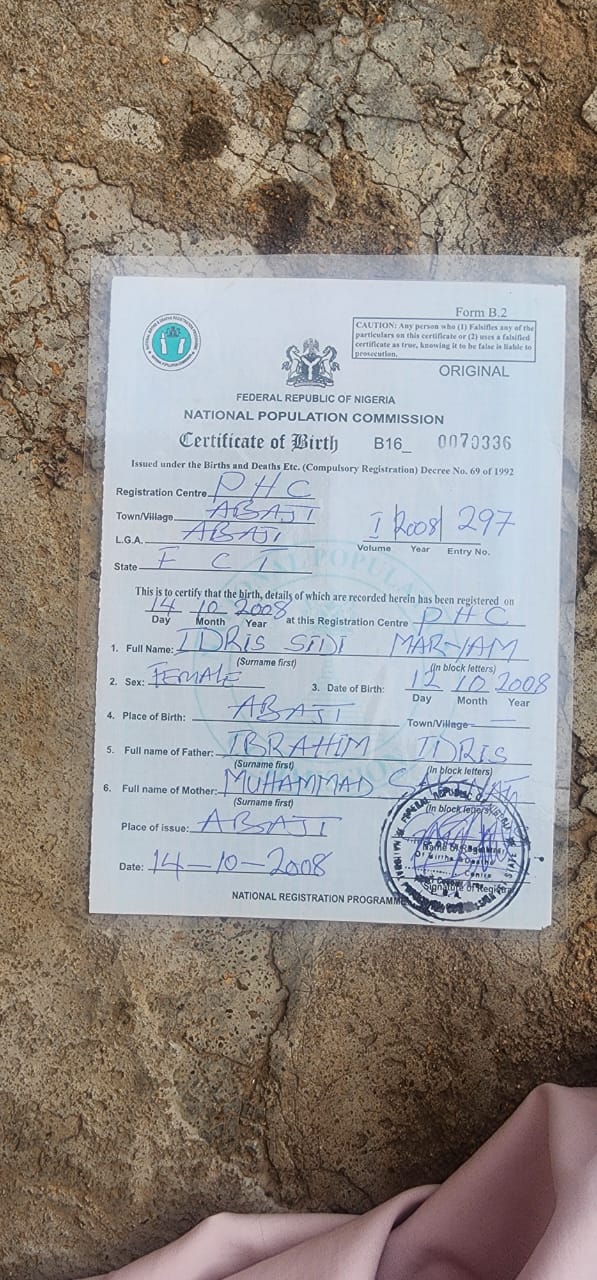 Form B.2
CAUTION: Any person who (1) Falsifies any of the
particulars on this certificate or (2) uses a falsified
certificate as true, knowing it to be false is liable to
prosecution.
ORIGINAL
FEDERAL REPUBLIC OF NIGERIA
NATIONAL POPULATION COMMISSION
Certificate of Birth B16_ 0070336
Issued under the Births and Deaths Etc. (Compulsory Registration) Decree No. 69 of 1992
Registration Centre PHC
Town/Village ABAJI
L.G.A. ABAJI
I 2008 297
Volume Year Entry No.
State F C T
This is to certify that the birth, details of which are recorded herein has been registered on
14 10 2008 at this Registration Centre PHC
Day Month Year
1. Full Name: IDRIS SIDI MARYAM
(Surname first) (In block letters)
2. Sex: FEMALE 3. Date of Birth: 12 10 2008
Day Month Year
4. Place of Birth: ABAJI Town/Village —
5. Full name of Father: IBRAHIM IDRIS
(Surname first) (In block letters)
6. Full name of Mother: MUHAMMAD
(Surname first) (In block letters)
Place of issue: ABAJI
Date: 14-10-2008
Signature of Registrar
NATIONAL REGISTRATION PROGRAMME